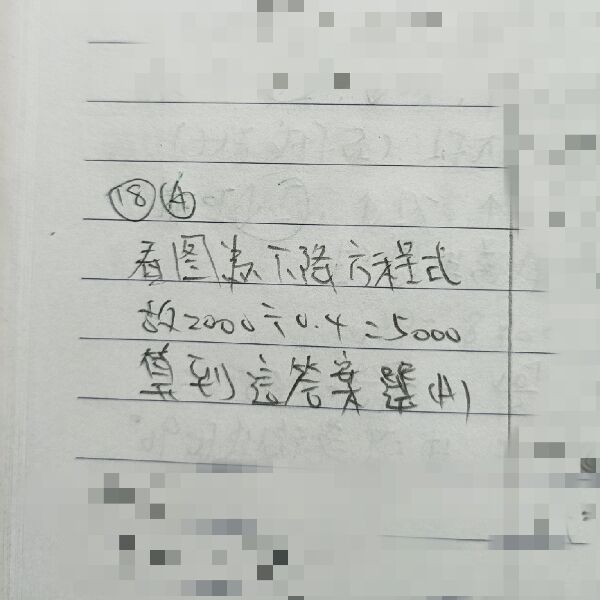 ⑱Ⓐ
看图为下降方程式
故2000÷0.4=5000
算到這答案選(A)